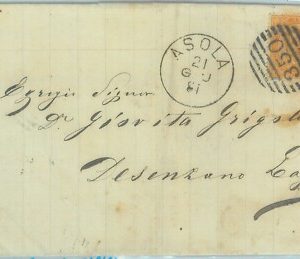 ASOLA
21
GIU
81
350
Egregio Signor
Dr. Giovita Grigol
Desenzano